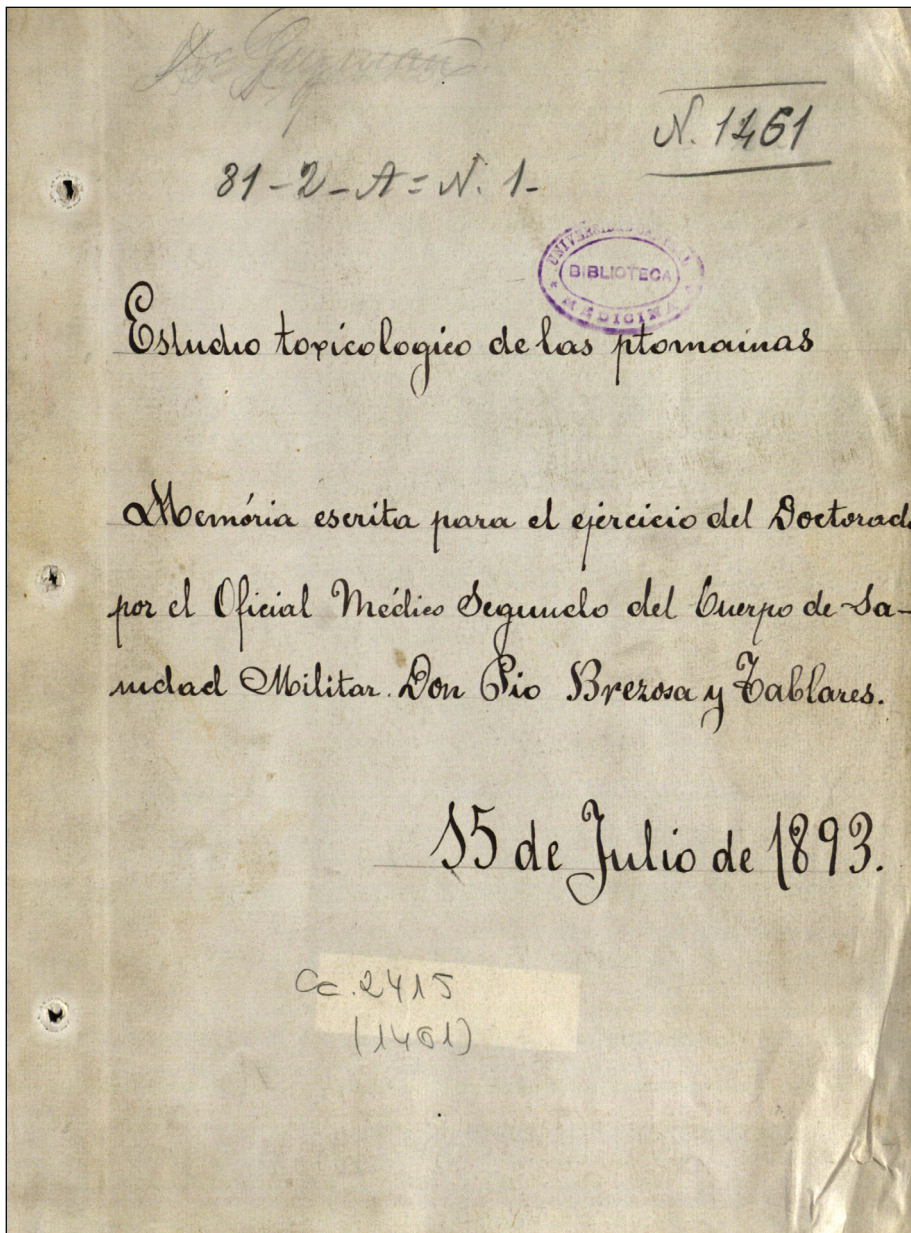 Dr Guzmán
N. 1461
81-2-A=N. 1-
BIBLIOTECA
MEDICINA
Estudio toxicologico de las ptomainas
Memória escrita para el ejercicio del Doctorado
por el Oficial Médico Segundo del Cuerpo de Sa-
nidad Militar. Don Pio Brezosa y Tablares.
15 de Julio de 1893.
Cc. 2415
(1461)